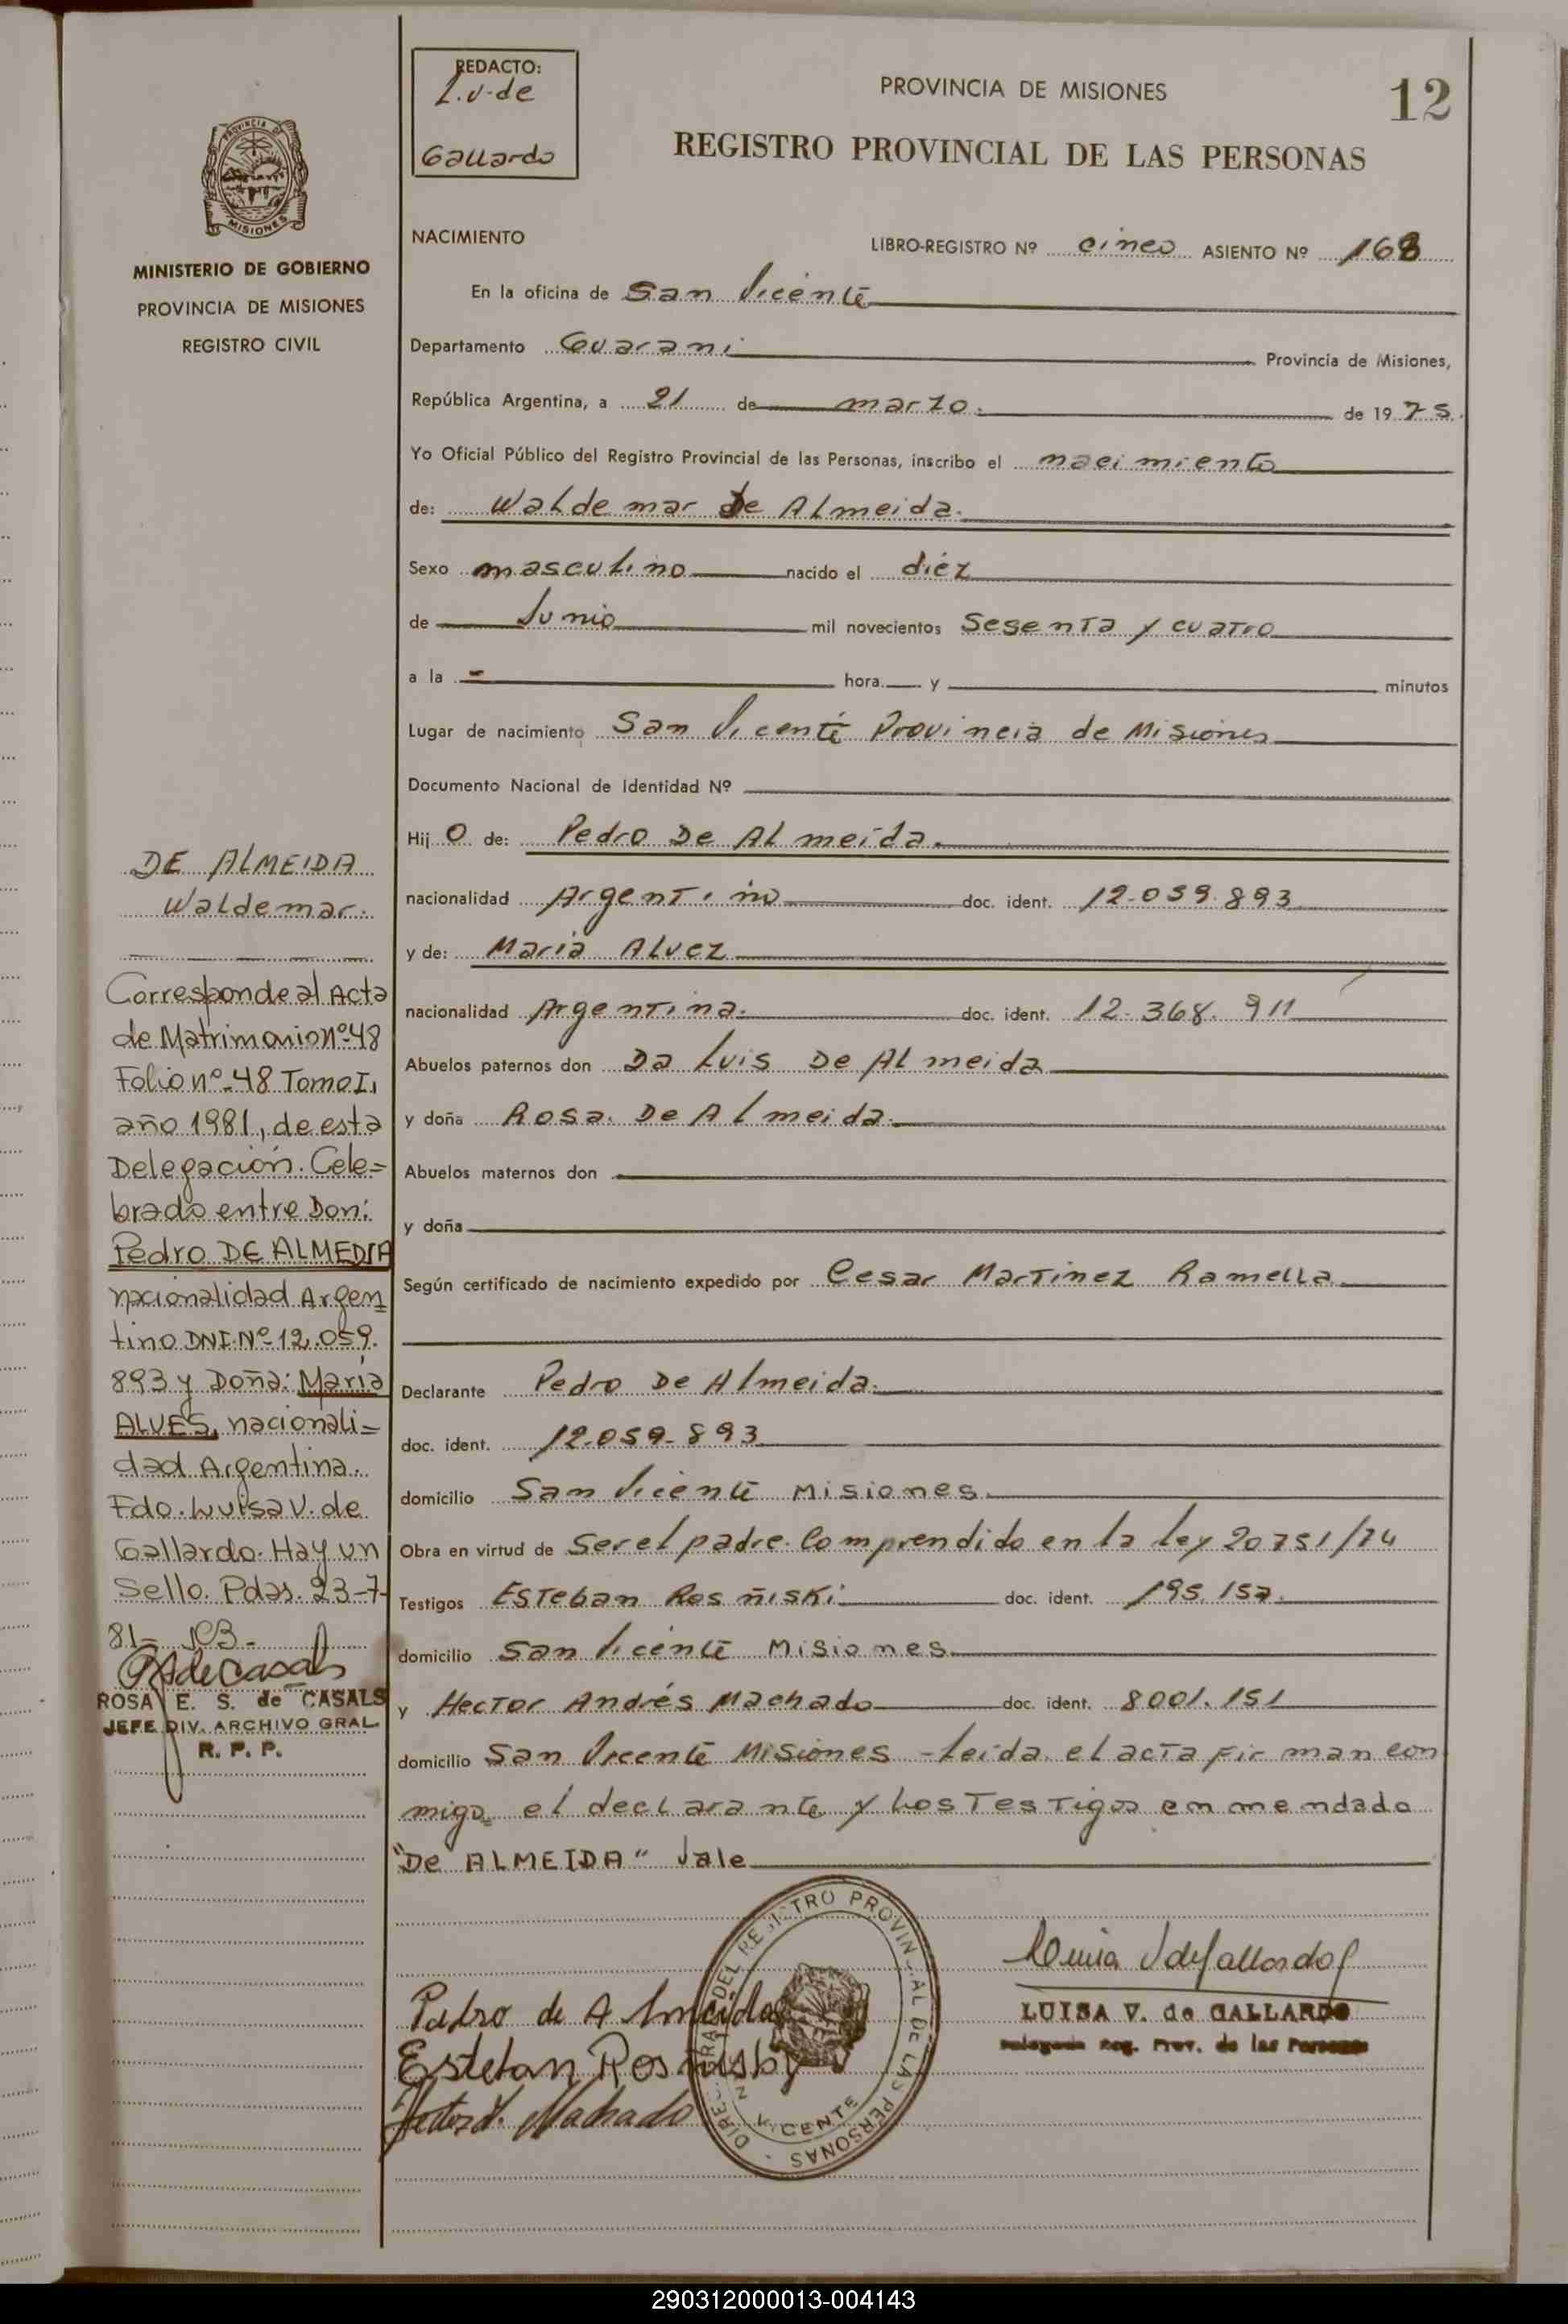 REDACTO:
L.V. de
Gallardo
PROVINCIA DE MISIONES
12
REGISTRO PROVINCIAL DE LAS PERSONAS
PROVINCIA DE
MISIONES
MINISTERIO DE GOBIERNO
PROVINCIA DE MISIONES
REGISTRO CIVIL
NACIMIENTO
LIBRO-REGISTRO Nº cinco ASIENTO Nº 168
En la oficina de San Vicente
Departamento Guarani Provincia de Misiones,
República Argentina, a 21 de marzo. de 1975.
Yo Oficial Público del Registro Provincial de las Personas, inscribo el nacimiento
de: Waldemar De Almeida.
Sexo masculino nacido el diéz
de Junio mil novecientos Sesenta y cuatro
a la - hora y minutos
Lugar de nacimiento San Vicente Provincia de Misiones
Documento Nacional de Identidad Nº
Hijo de: Pedro De Almeida.
nacionalidad Argentino doc. ident. 12.059.893
y de: Maria Alvez
nacionalidad Argentina. doc. ident. 12.368.911
Abuelos paternos don Da Luis De Almeida
y doña Rosa. De Almeida.
Abuelos maternos don
y doña
Según certificado de nacimiento expedido por Cesar Martinez Ramella
Declarante Pedro De Almeida.
doc. ident. 12.059.893
domicilio San Vicente Misiones.
Obra en virtud de Ser el padre. Comprendido en la ley 20751/74
Testigos Esteban Rosñiski doc. ident. 195.157.
domicilio San Vicente Misiones
y Hector Andrés Machado doc. ident. 8001.151
domicilio San Vicente Misiones - Leida el acta firman con
migo el declarante y los Testigos enmendado
"De ALMEIDA" Vale
DE ALMEIDA
Waldemar.
Corresponde al Acta
de Matrimonio nº 48
Folio nº 48 Tomo I,
año 1981, de esta
Delegación. Cele=
brado entre Don:
Pedro DE ALMEDIA
nacionalidad Argen
tino DNI. Nº 12.059.
893 y Doña: Maria
ALVES, nacionali=
dad Argentina.
Fdo. Luisa V. de
Gallardo. Hay un
Sello. Pdas. 23-7-
81-
ROSA E. S. de CASALS
JEFE DIV. ARCHIVO GRAL.
R. P. P.
Pedro de Almeida
Esteban
Hector A. Machado
DEL REGISTRO PROVINCIAL DE LAS PERSONAS
VICENTE
Luisa V de Gallardo
LUISA V. de GALLARDO
Delegada Reg. Prov. de las Personas
290312000013-004143